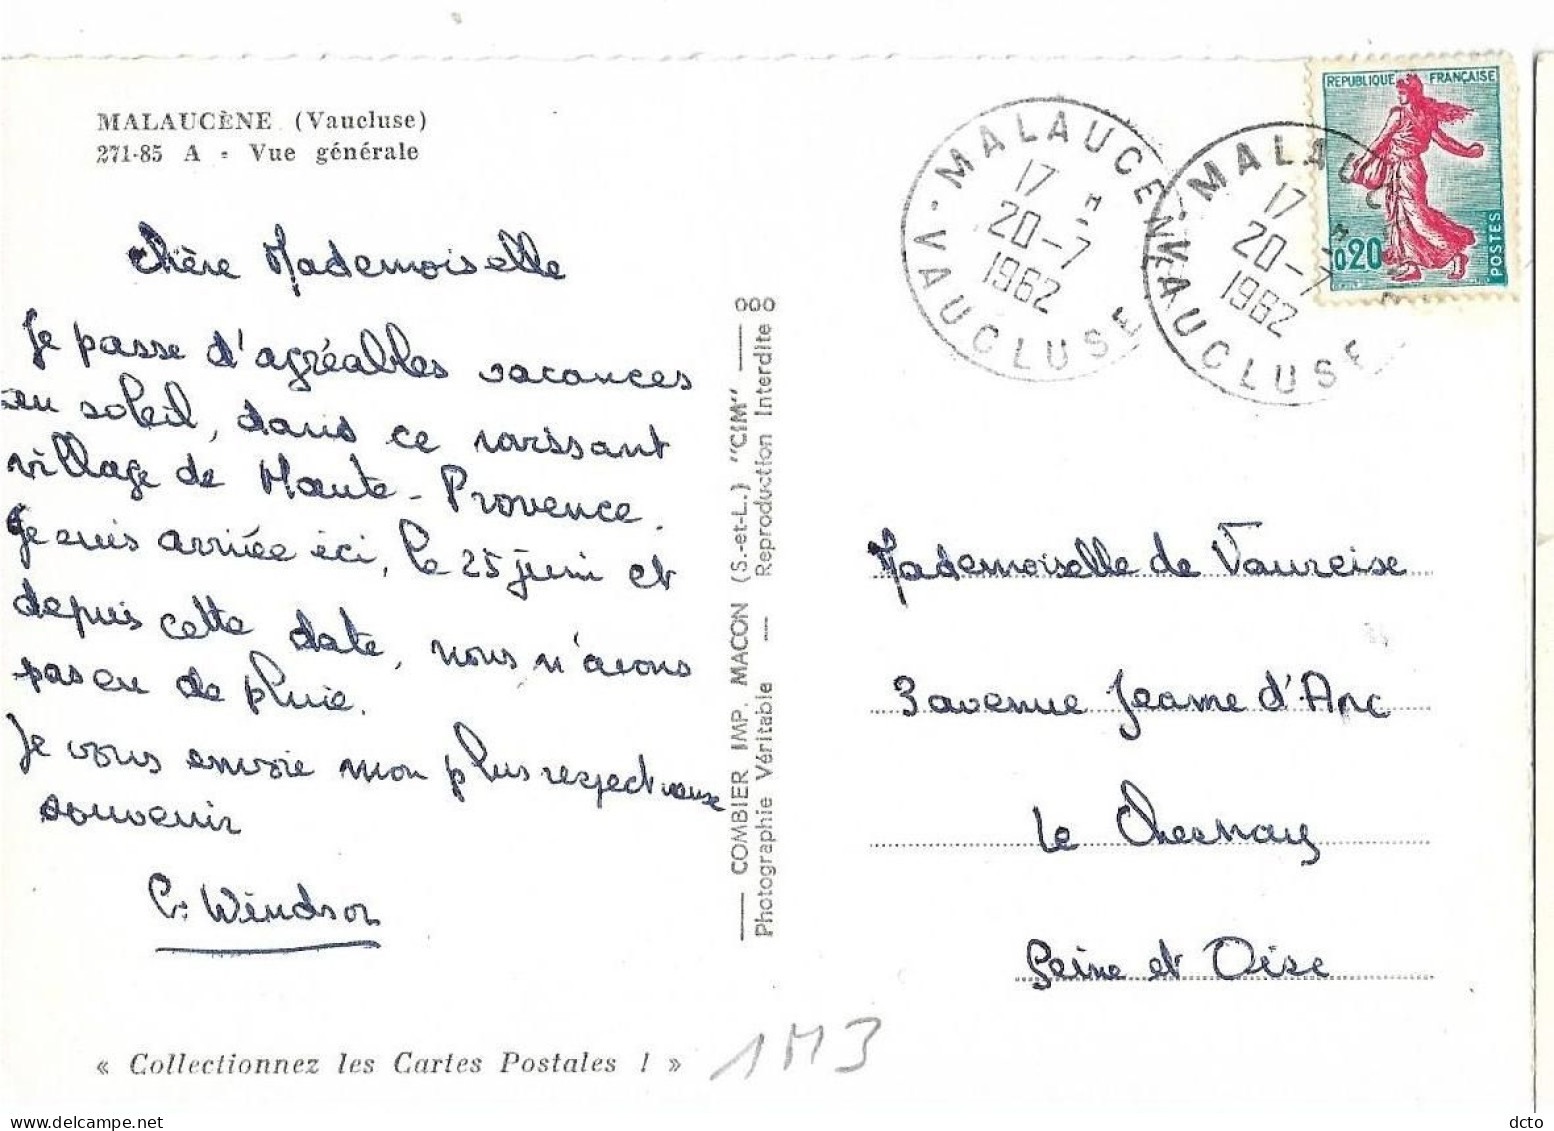 MALAUCÈNE (Vaucluse)
271-85 A - Vue générale
Chère Mademoiselle
Je passe d'agréables vacances
au soleil, dans ce ravissant
village de Haute-Provence.
Je suis arrivée ici, le 25 juin et
depuis cette date, nous n'avons
pas eu de pluie.
Je vous envoie mon plus respectueux
souvenir
C. Windsor
« Collectionnez les Cartes Postales ! »
1M3
COMBIER IMP. MACON (S.-et-L.) "CIM"
Photographie Véritable — Reproduction Interdite
MALAUCENE
17 H
20-7
1962
VAUCLUSE
MALAUCENE
17 H
20-7
1962
VAUCLUSE
REPUBLIQUE FRANÇAISE
0,20
POSTES
Mademoiselle de Vaureise
3 avenue Jeanne d'Arc
Le Chesnay
Seine et Oise
dcto